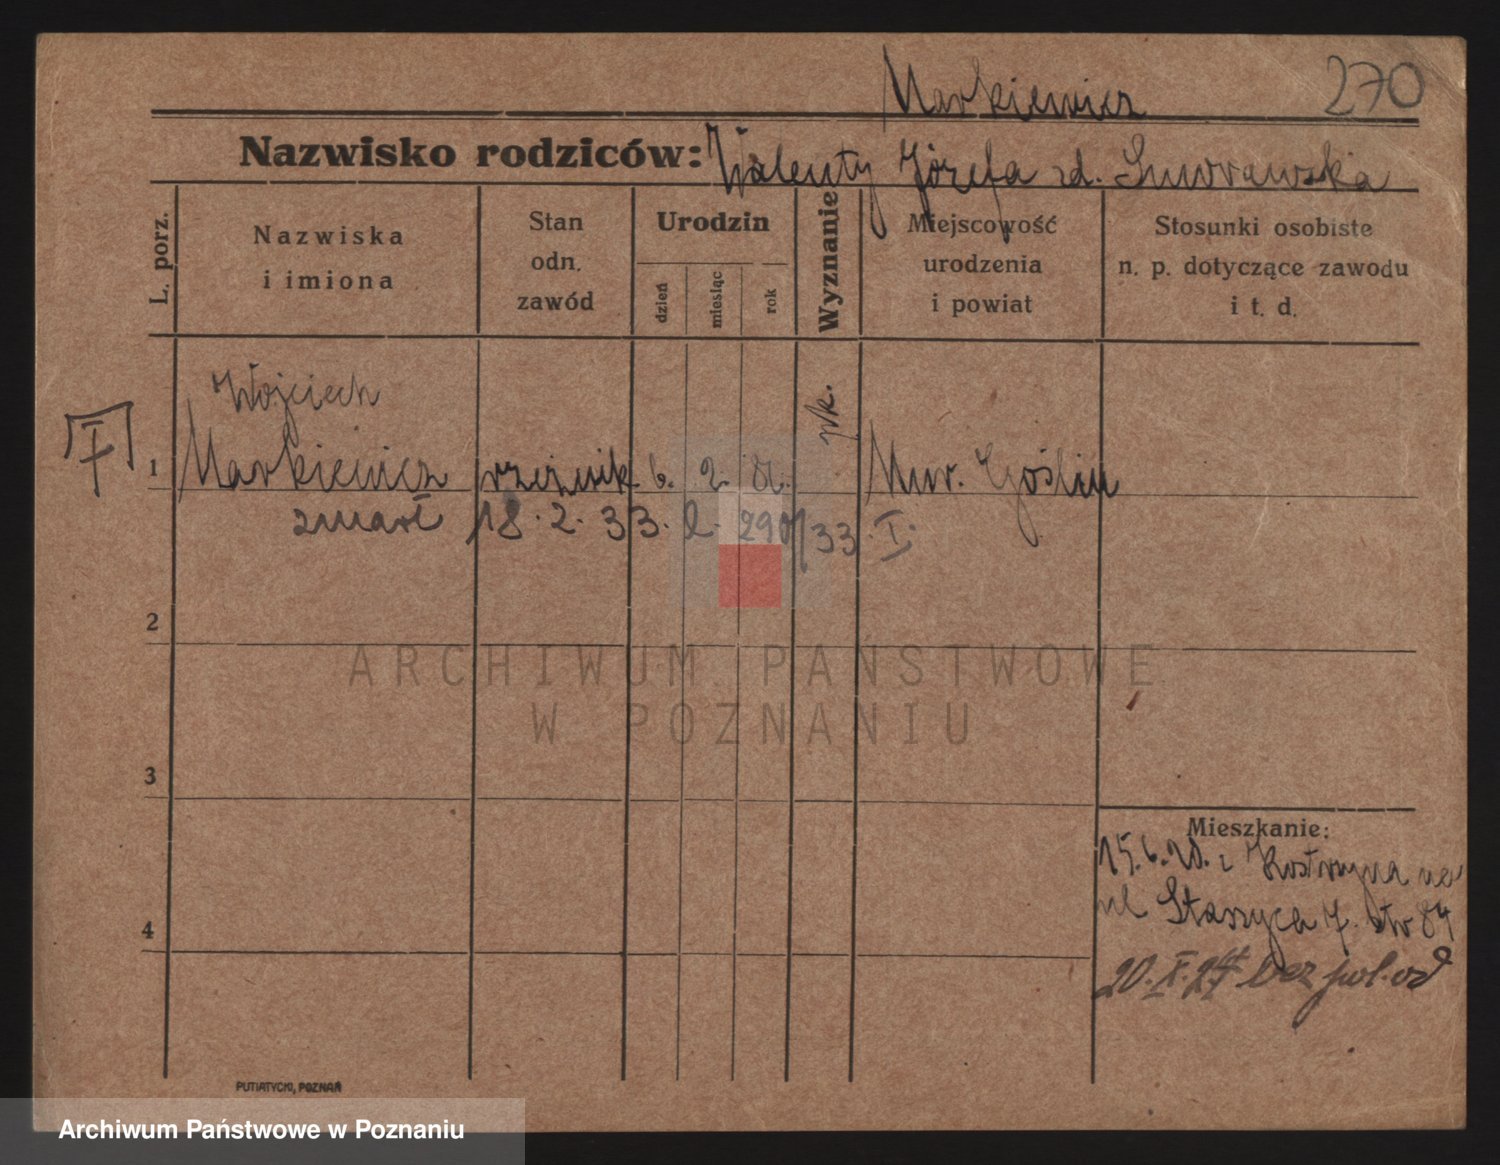 270
Markiewicz
Nazwisko rodziców: Walenty Józefa zd.
L. porz.
Nazwiska
i imiona
Stan
odn.
zawód
Urodzin
dzień
miesiąc
rok
Wyznanie
Miejscowość
urodzenia
i powiat
Stosunki osobiste
n. p. dotyczące zawodu
i t. d.
Wojciech
1 Markiewicz rzeźnik 6. 2. rk. Mur. Goślin
zmarł 18. 2. 33. l. 290/33. I.
2
ARCHIWUM PAŃSTWOWE
W POZNANIU
3
Mieszkanie:
15.6.20. z Kostrzyna na
ul Staszyca 7. str 84
4
20. X. 24 bez pol. od
PUTIATYCKI, POZNAŃ
Archiwum Państwowe w Poznaniu